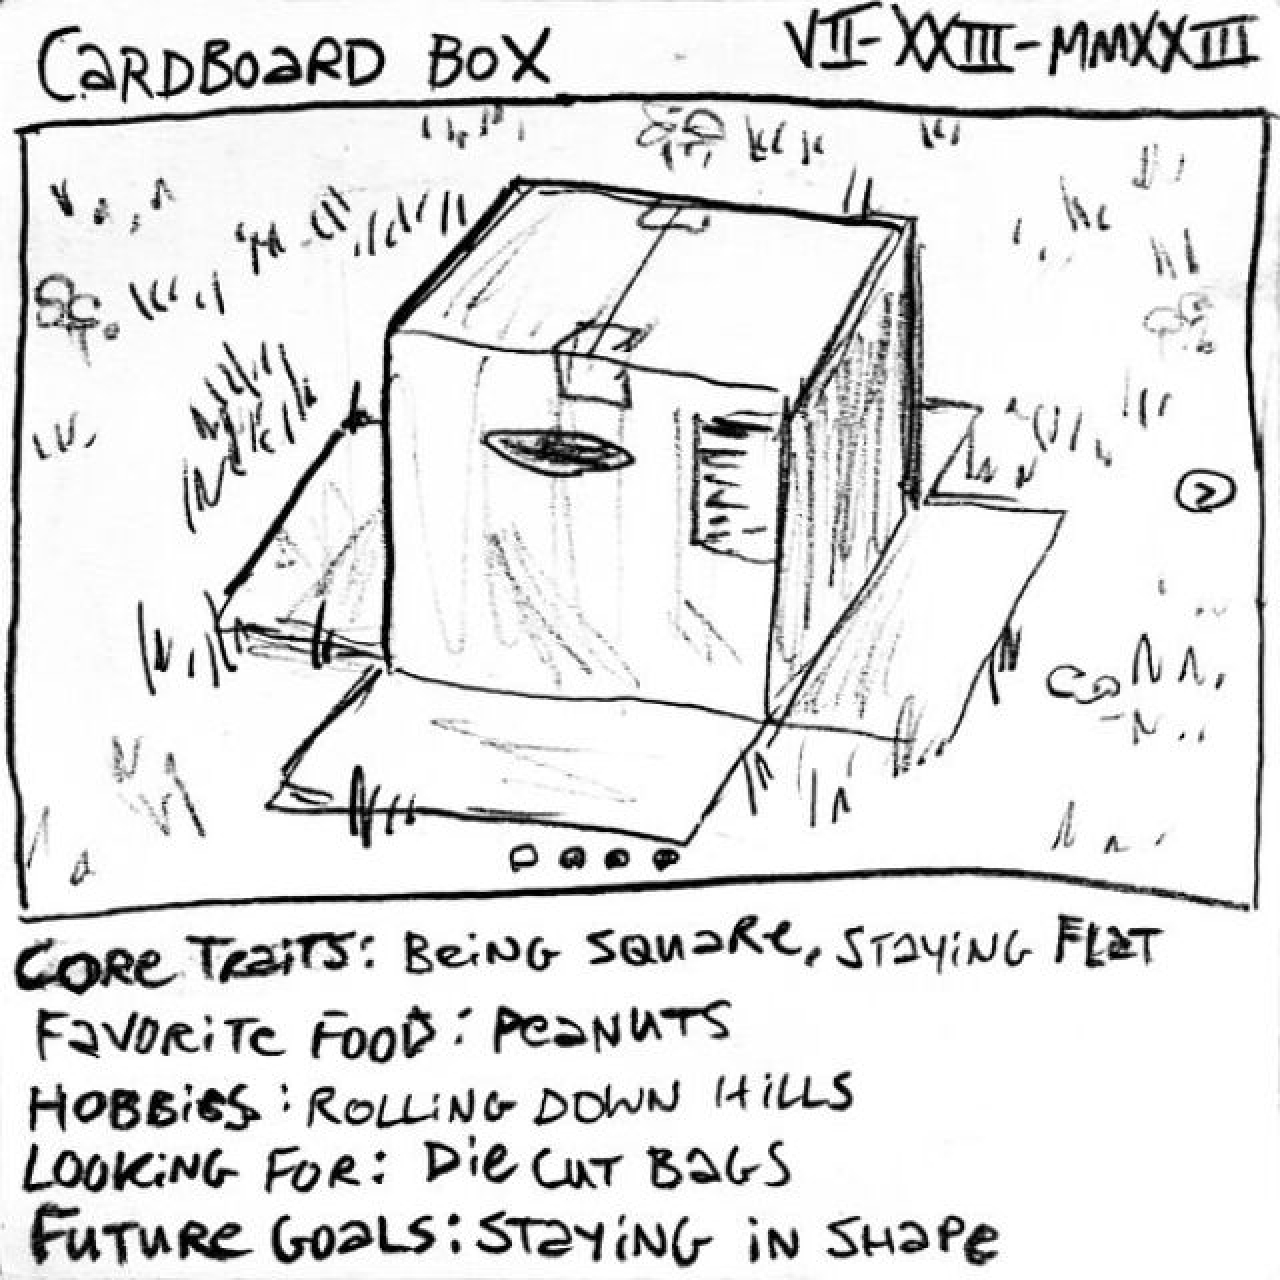 CARDBOARD BOX
VII-XXIII-MMXXIII
CORE TRAITS: BEING SQUARE, STAYING FLAT
FAVORITE FOOD: PEANUTS
HOBBIES: ROLLING DOWN HILLS
LOOKING FOR: DIE CUT BAGS
FUTURE GOALS: STAYING IN SHAPE